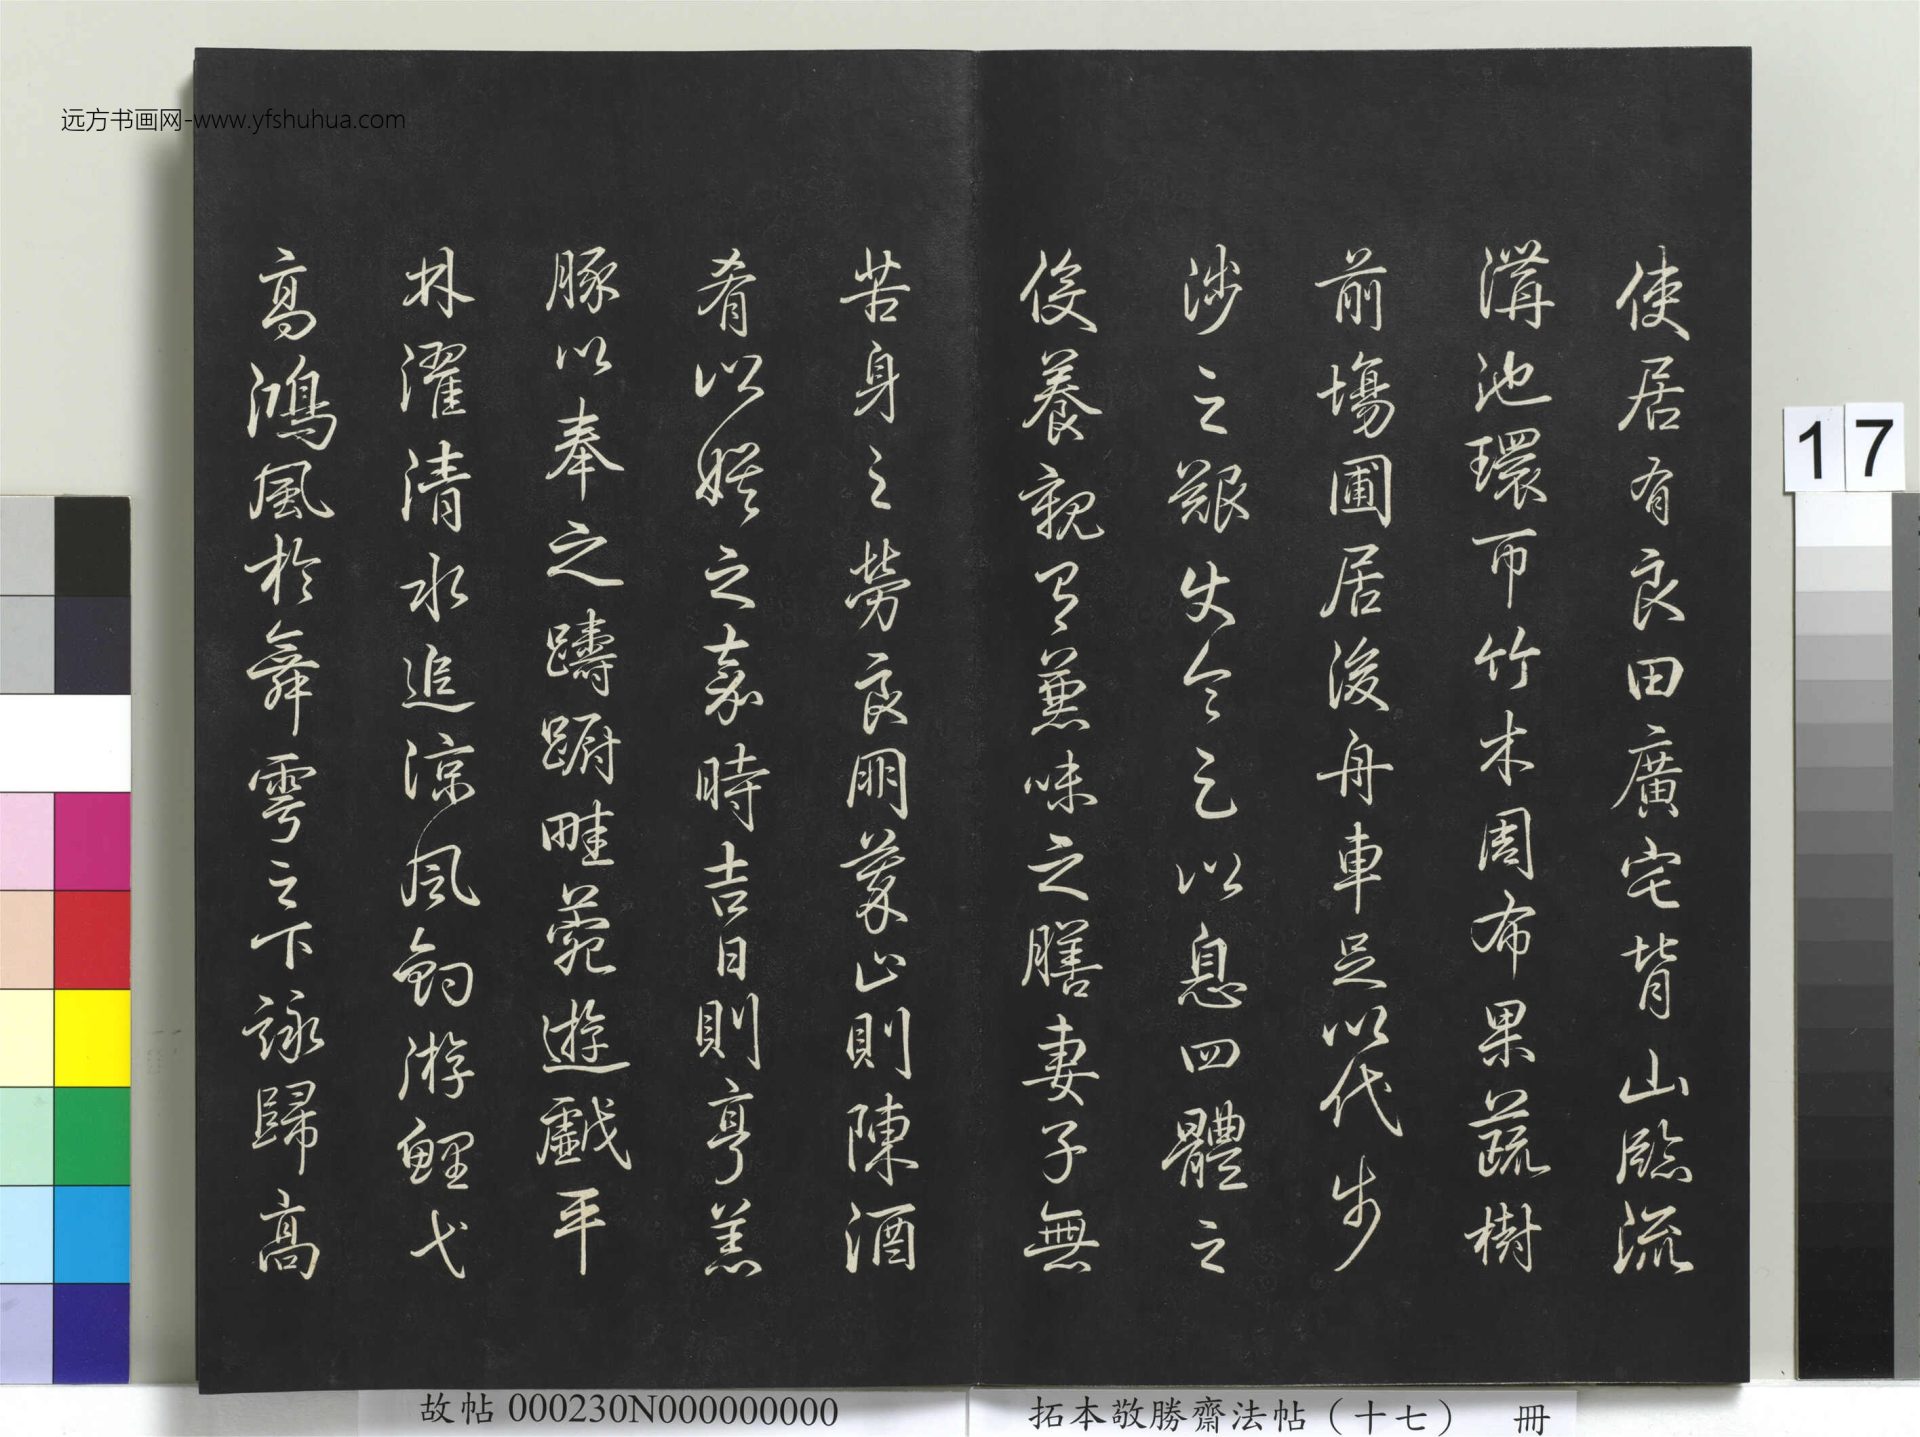 使居有良田廣宅背山臨流
溝池環帀竹木周布果蔬樹
前場圃居後舟車足以代步
涉之艱使令足以息四體之
役養親有蒹味之膳妻子無
苦身之勞良朋萃止則陳酒
肴以娛之嘉時吉日則亨羔
豚以奉之躊躕畦菀遊戲平
林濯清水追涼風釣游鯉弋
高鴻風於舞雩之下詠歸高
远方书画网-www.yfshuhua.com
17
故帖 000230N000000000
拓本敬勝齋法帖（十七） 冊